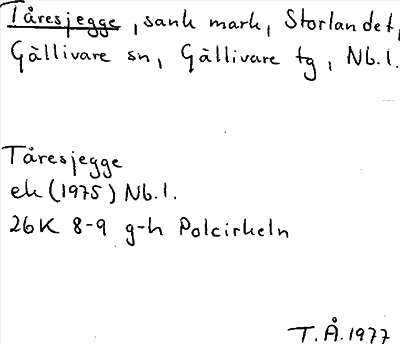 Tåresjegge, sank mark, Storlandet,
Gällivare sn, Gällivare tg, Nb.l.
Tåresjegge
ek (1975) Nb.l.
26K 8-9 g-h Polcirkeln
T.Å.1977